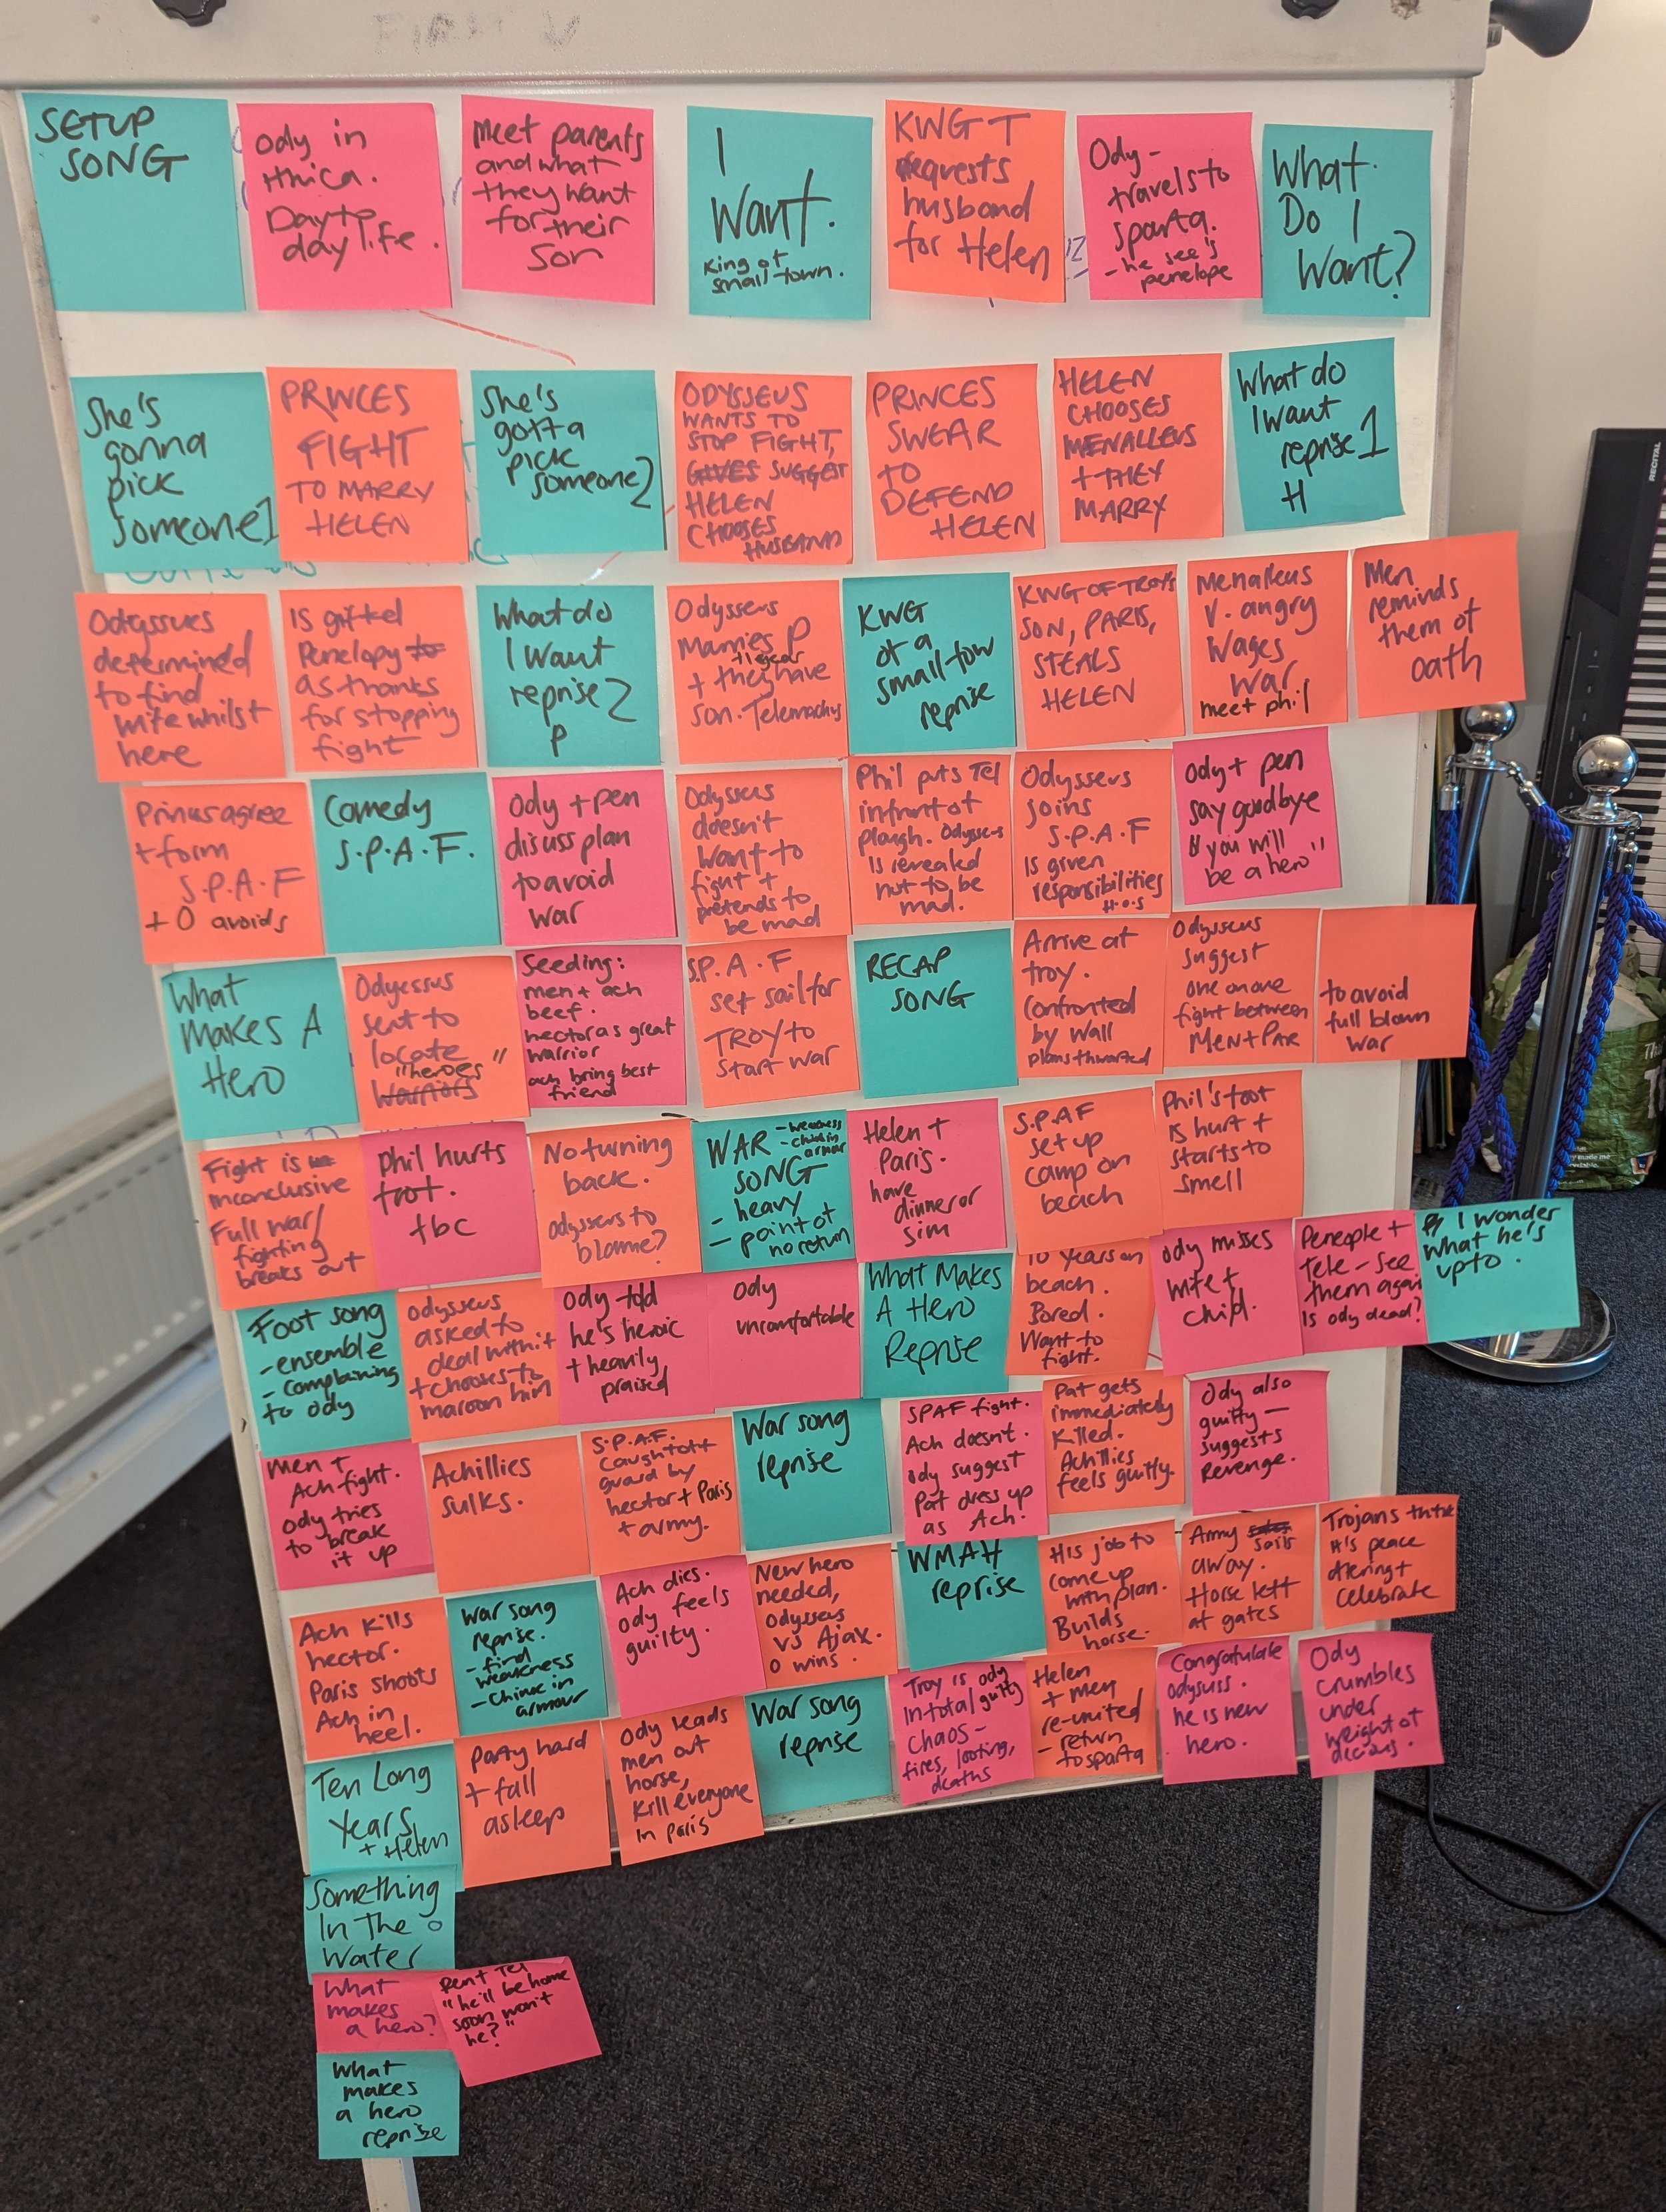 SETUP
SONG
Ody in
Ithica.
Day to
day life.
Meet parents
and what
they want
for their
son
I
Want.
King of
small town.
KING T
requests
husband
for Helen
Ody -
travels to
sparta.
- he see's
penelope
What
Do I
Want?
She's
gonna
pick
someone 1
PRINCES
FIGHT
TO MARRY
HELEN
She's
gotta
pick
someone 2
ODYSSEUS
WANTS TO
STOP FIGHT,
GIVES SUGGEST
HELEN
CHOOSES
HUSBAND
PRINCES
SWEAR
TO
DEFEND
HELEN
HELEN
CHOOSES
MENALLEUS
+ THEY
MARRY
What do
I want
reprise 1
H
Odyssues
determined
to find
wife whilst
here
Is gifted
Penelopy to
as thanks
for stopping
fight
What do
I Want
reprise 2
P
Odysseus
Marries P
+ 1 year
+ they have
son. Telemachus
KING
of a
small tow
reprise
KING OF TROY'S
SON, PARIS,
STEALS
HELEN
Menalleus
V. angry
Wages
War
meet phil
Men
reminds
them of
oath
Princes agree
+ form
S.P.A.F
+ O avoids
Comedy
S.P.A.F.
Ody + pen
discuss plan
to avoid
war
Odysseus
doesn't
want to
fight +
pretends to
be mad
Phil puts Tel
infront of
plough. Odysseus
is revealed
not to be
mad.
Odysseus
joins
S.P.A.F
is given
responsibilities
H.O.S
Ody + pen
say goodbye
"you will
be a hero"
What
Makes A
Hero
Odyessus
sent to
locate
"heroes"
Warriors
Seeding:
men + ach
beef.
hector as great
warrior
ach bring best
friend
S.P.A.F
set sail for
TROY to
start war
RECAP
SONG
Arrive at
troy.
Confronted
by wall
plans thwarted
Odysseus
suggest
one on one
fight between
Men + PAR
to avoid
full blown
war
Fight is
inconclusive
Full war/
fighting
breaks out
Phil hurts
foot.
tbc
No turning
back.
odysseus to
blame?
WAR
SONG
- weakness
- chink in
armour
- heavy
- point of
no return
Helen +
Paris.
have
dinner or
sim
S.P.A.F
set up
camp on
beach
Phil's foot
is hurt +
starts to
smell
Foot song
- ensemble
- complaining
to ody
Odysseus
asked to
deal with it
+ chooses to
maroon him
Ody told
he's heroic
+ heavily
praised
Ody
uncomfortable
What Makes
A Hero
Reprise
10 years on
beach.
Bored.
Want to
fight.
Ody misses
wife +
child.
Peneople +
Tele - see
them again
Is ody dead?
I wonder
what he's
up to.
Men +
Ach fight.
Ody tries
to break
it up
Achillies
sulks.
S.P.A.F.
caught off
guard by
hector + Paris
+ army.
War song
reprise
SPAF fight.
Ach doesn't.
Ody suggest
Pat dress up
as Ach.
Pat gets
immediately
killed.
Achillies
feels guilty.
Ody also
guilty -
suggests
Revenge.
Ach kills
hector.
Paris shoots
Ach in
heel.
War song
reprise.
- find
weakness
- Chink in
armour
Ach dies.
Ody feels
guilty.
New hero
needed,
Odysseus
vs Ajax.
O wins.
WMAH
reprise
His job to
come up
with plan.
Builds
horse.
Army
sails
away.
Horse left
at gates
Trojans think
it's peace
offering +
celebrate
Ten Long
Years
+ Helen
Party hard
+ fall
asleep
Ody leads
men out
horse,
Kill everyone
in Paris
War song
reprise
Troy is
in total
chaos -
fires, looting,
deaths
ody
guilty
Helen
+ men
re-united
- return
to sparta
Congratulate
odysuss.
he is new
hero.
Ody
crumbles
under
weight of
Something
In The
Water
What
makes
a hero?
Pen + Tel
"he'll be home
soon won't
he?"
What
makes
a hero
reprise
RECITAL